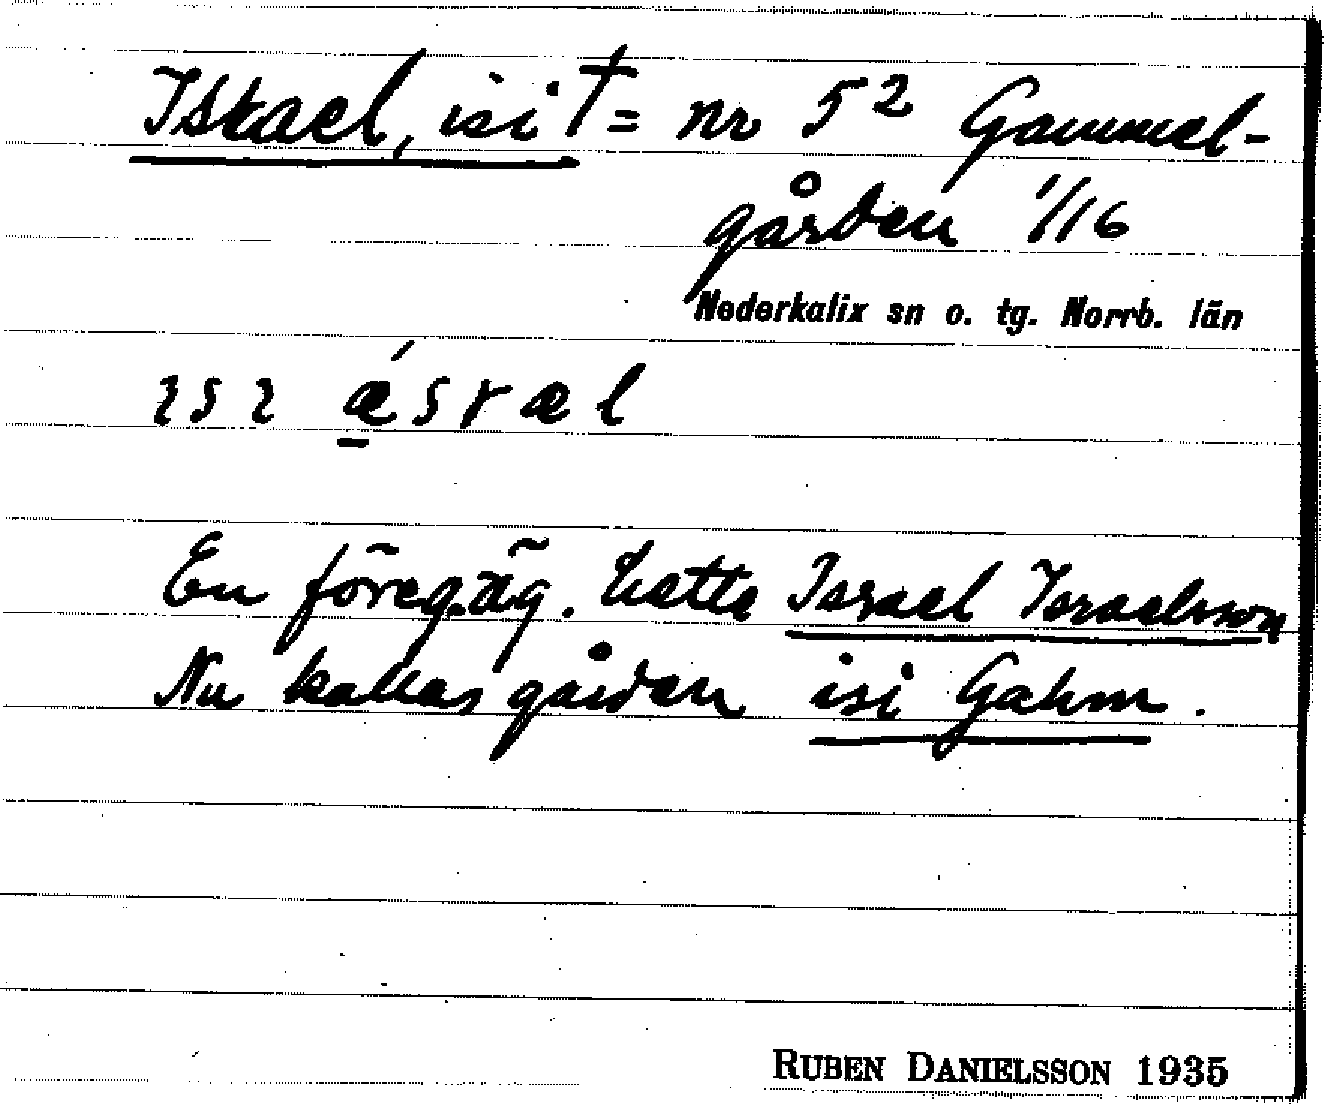 Israel, isi † = nr 5² Gammel-
gården 1/16
Nederkalix sn o. tg. Norrb. län
ɩsɩ ǽsræl
En föreg. äg. hette Israel Israelsson
Nu kallas gården isi Gahm.
RUBEN DANIELSSON 1935